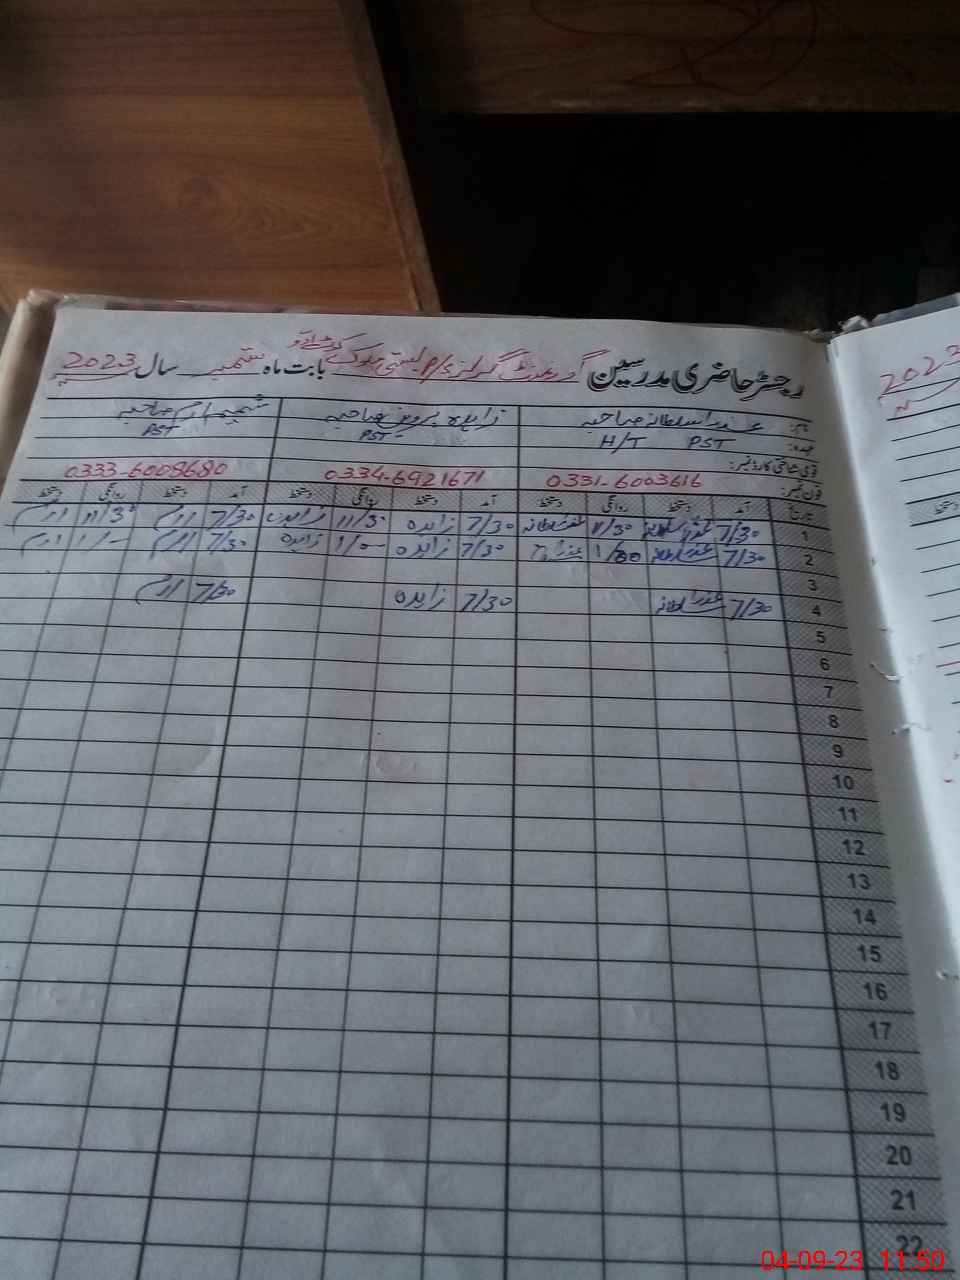 رجسٹر حاضری مدرسین گورنمنٹ گرلز P/S بستی بابت ماہ ستمبر سال 2023
نام: عذرا سلطانہ صاحبہ زاہدہ پروین صاحبہ شمیم ارم صاحبہ
عہدہ: PST H/T PST PST
قومی شناختی کارڈ نمبر:
فون نمبر: 0331-6003616 0334-6921671 0333-6008680
تاریخ آمد دستخط روانگی دستخط آمد دستخط روانگی دستخط آمد دستخط روانگی دستخط
1 7/30 عذرا سلطانہ 11/30 عذرا سلطانہ 7/30 زاہدہ 11/30 زاہدہ 7/30 ارم 11/30 ارم
2 7/30 عذرا سلطانہ 1/00 عذرا 7/30 زاہدہ 1/0- زاہدہ 7/30 ارم 1/- ارم
3
4 7/30 عذرا سلطانہ 7/30 زاہدہ 7/30 ارم
5
6
7
8
9
10
11
12
13
14
15
16
17
18
19
20
21
22
2023
دستخط
04-09-23 11:50